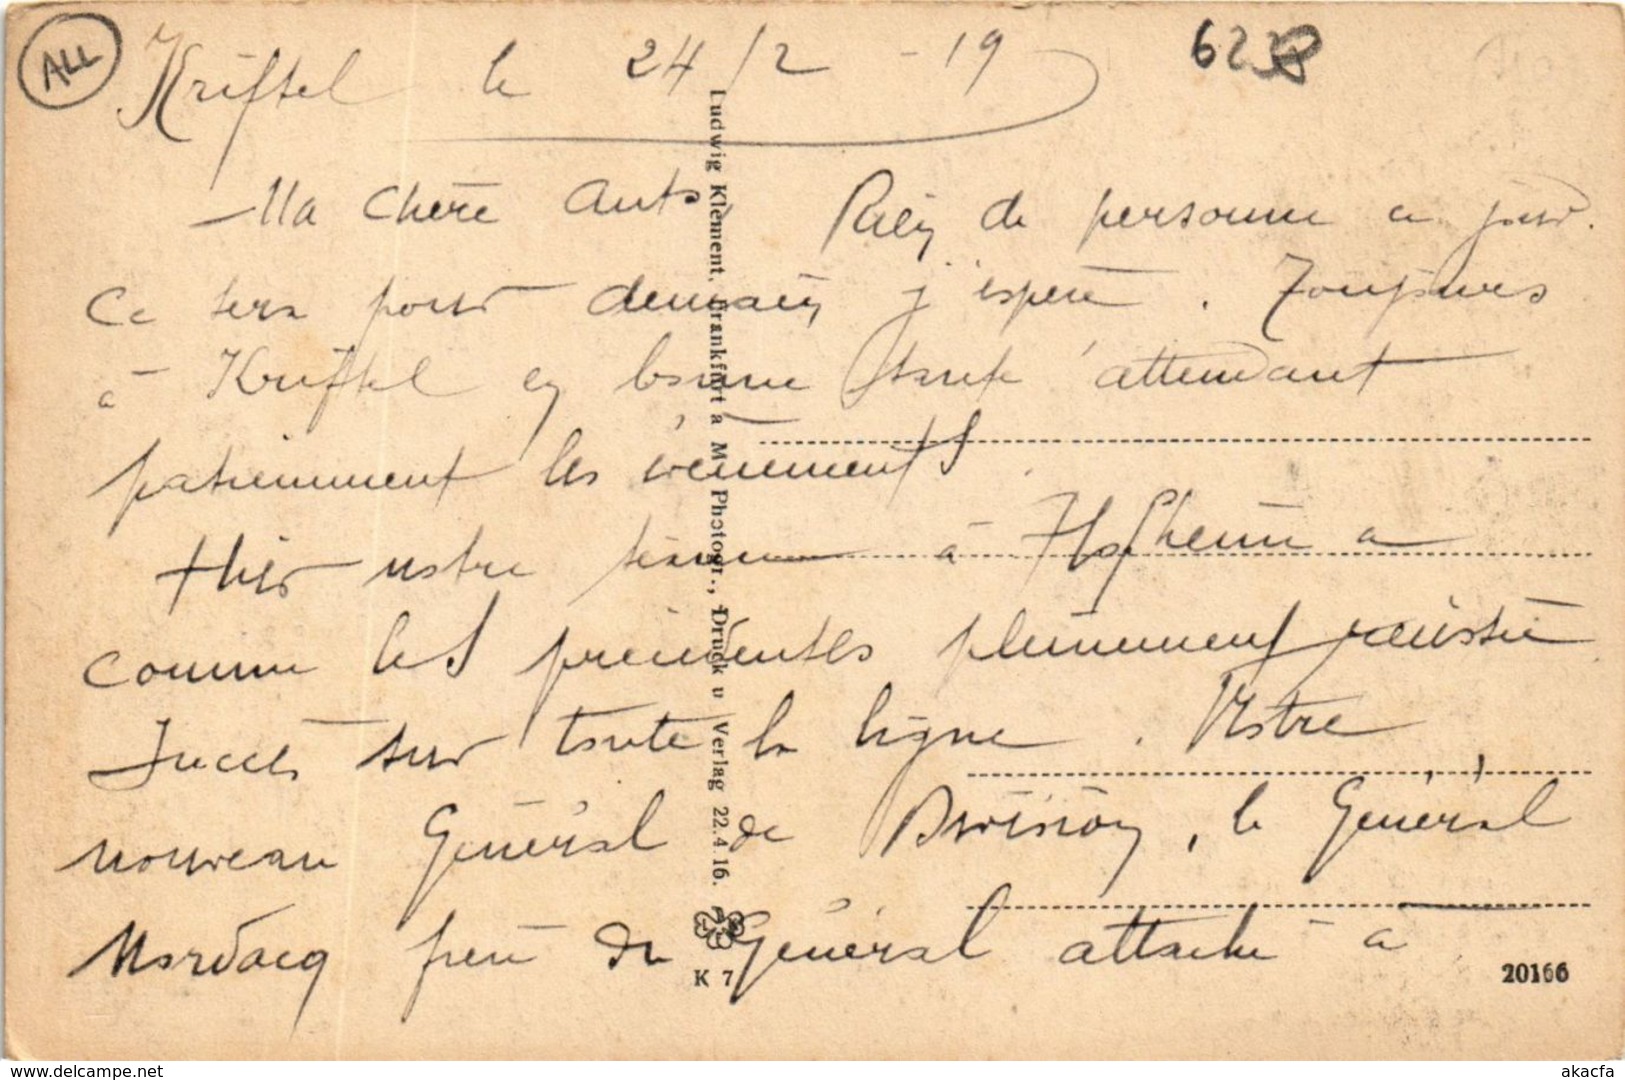 ALL
Kriftel le 24/2 - 19
6238
Ma Chère Rien de personne ce jour.
Ce sera pour demain j'espère. Toujours
à Kriftel en bonne santé attendant
patiemment les évènements.
Hier notre à Hofheim a
comme les précédentes pleinement réussie
Succès sur toute la ligne. Notre
nouveau Général de Division, le Général
Mordacq frère du Général attaché à
Ludwig Klement, Frankfurt a M., Photogr., Druck u Verlag 22.4.16.
K 7
20166
delcampe.net
akacfa